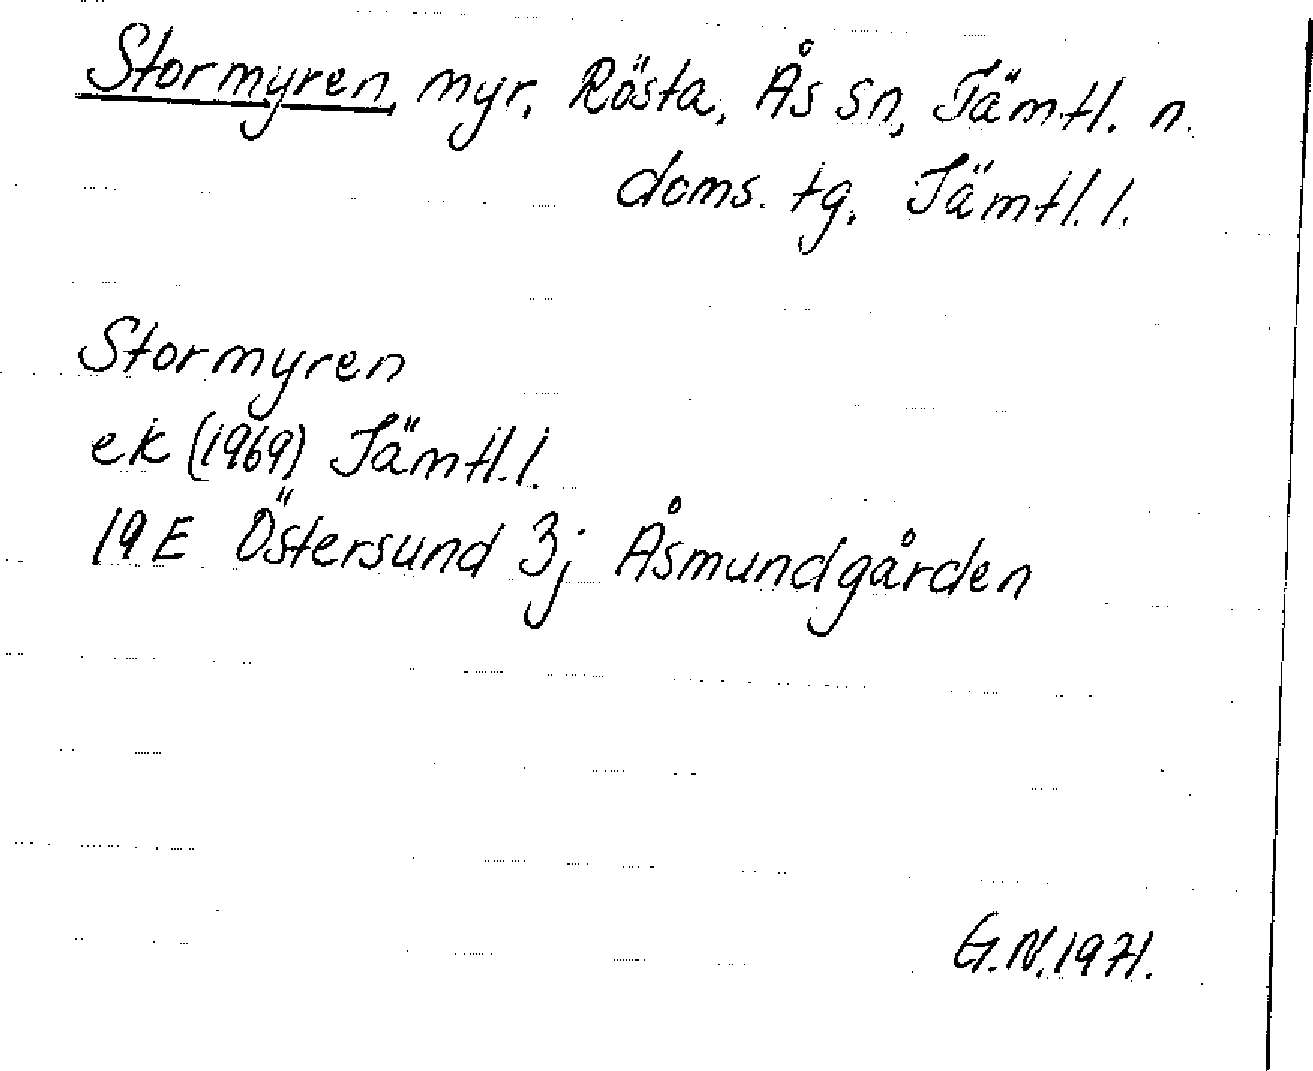 Stormyren, myr, Rösta, Ås sn, Jämtl. n.
doms. tg. Jämtl. l.
Stormyren
ek (1969) Jämtl. l.
19 E Östersund 3j Åsmundgården
G.N. 1971.